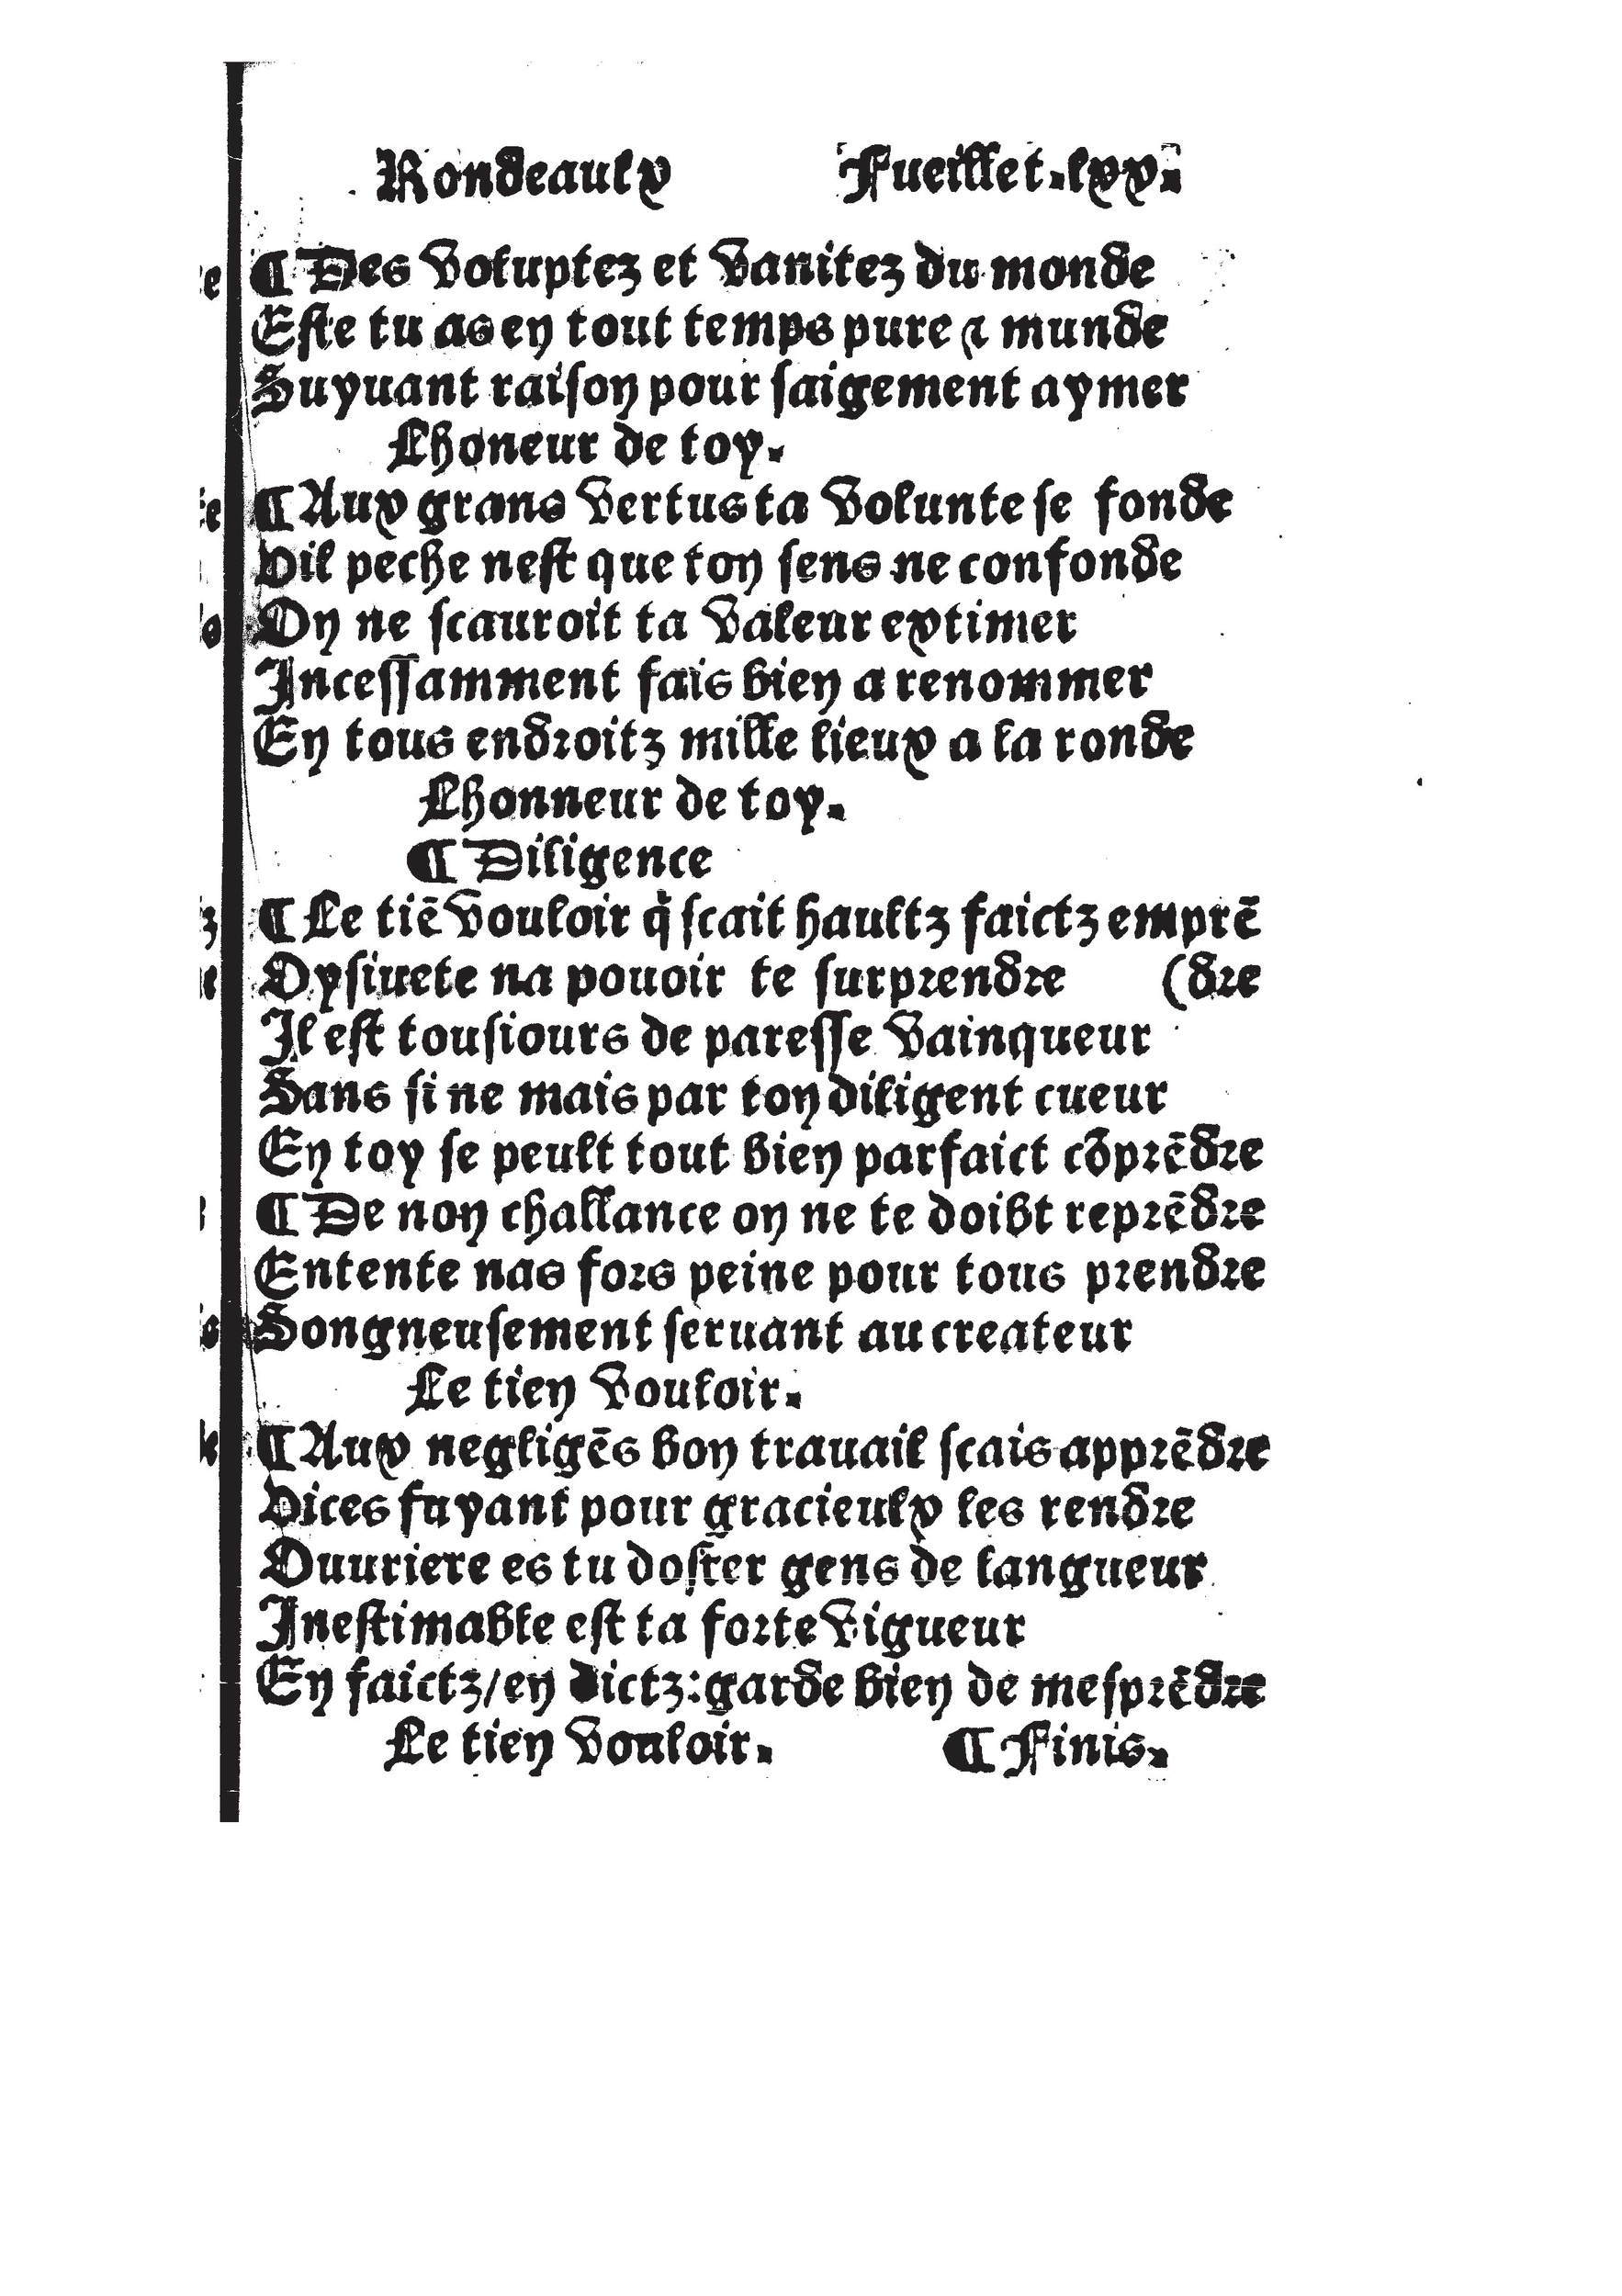 Rondeaulx Fueillet.lxx.
¶ Des voluptez et vanitez du monde
Este tu as en tout temps pure ⁊ munde
Suyuant raison pour saigement aymer
Lhoneur de toy.
¶ Aux grans vertus ta volunte se fonde
Vil peche nest que ton sens ne confonde
On ne scauroit ta valeur extimer
Incessamment fais bien a renommer
En tous endroitz mille lieux a la ronde
Lhonneur de toy.
¶ Diligence
¶ Le tiē vouloir q̇ scait haultz faictz emprē
Oysiuete na pouoir te surprendre (dre
Il est tousiours de paresse vainqueur
Sans si ne mais par ton diligent cueur
En toy se peult tout bien parfaict cōprēdre
¶ De non challance on ne te doibt reprēdre
Entente nas fors peine pour tous prendre
Songneusement seruant au createur
Le tien vouloir.
¶ Aux negligēs bon trauail scais apprēdre
Vices fuyant pour gracieulx les rendre
Ouuriere es tu doster gens de langueur
Inestimable est ta forte vigueur
En faictz/en dictz:garde bien de mesprēdre
Le tien vouloir. ¶ Finis.